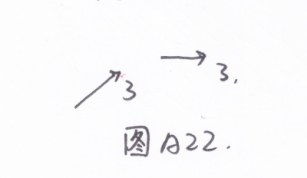 3.
3
图A22.